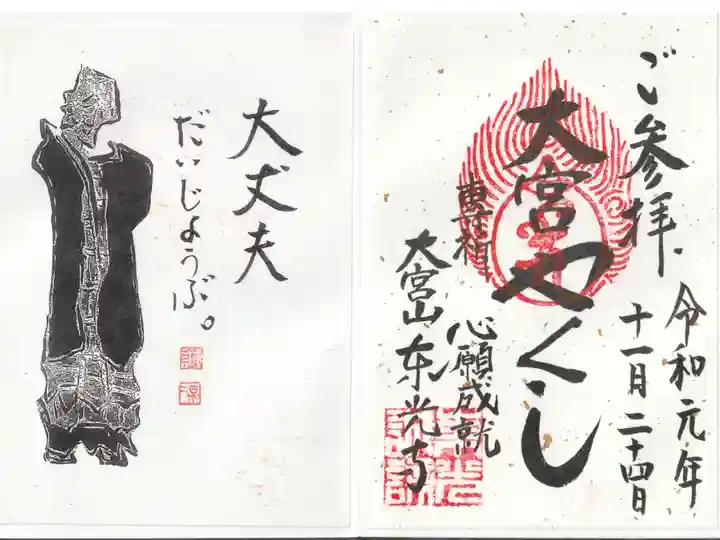 大丈夫
だいじょうぶ。
ご参拝
令和元年
十一月二十四日
大宮やくし
心願成就
大宮山东光寺